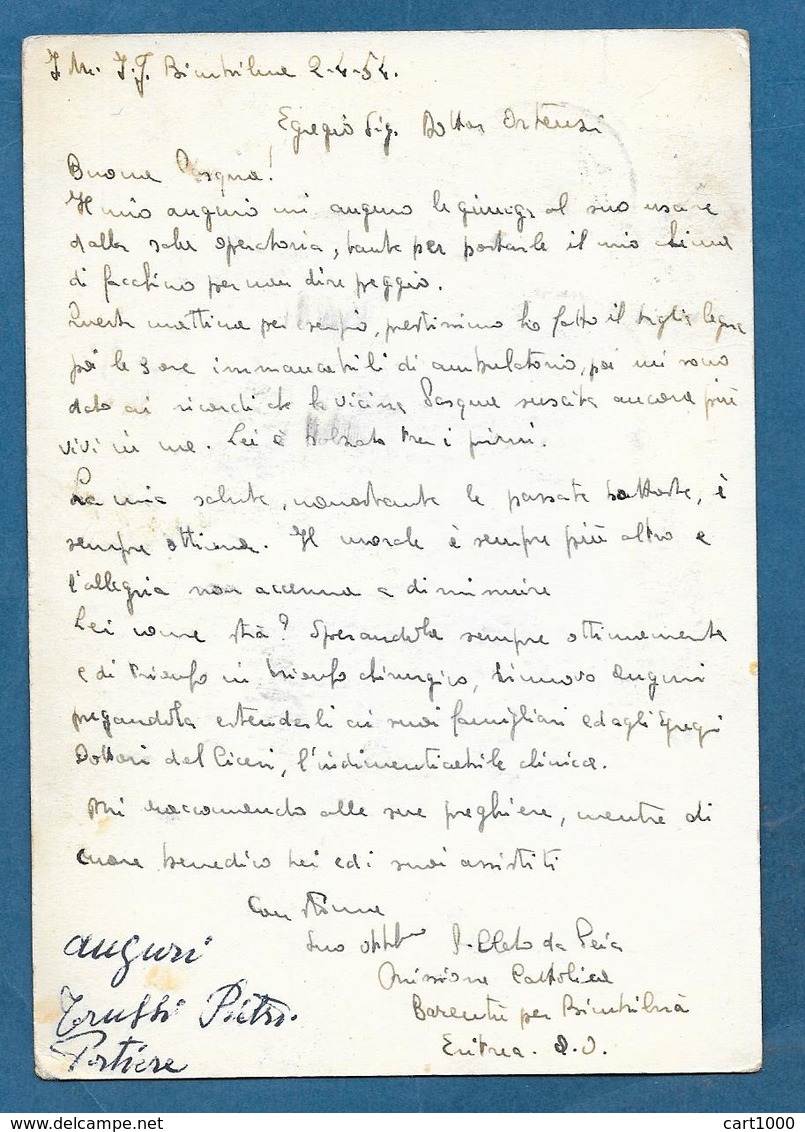 J. M. J. F. Bimbilna 2-4-54.
Egregio Sig. Dottor Ortensi
Buona Pasqua!
Il mio augurio mi auguro le giunga al suo
dalla sala operatoria, tanto per portarle il mio
di facchino per non dire peggio.
Questa mattina per esempio, prestissimo ho fatto il taglia legna
poi le 3 ore immancabili di ambulatorio, poi mi sono
dato ai ricordi che la vicina Pasqua suscita ancora più
vivi in me. Lei è tra i primi.
La mia salute, nonostante le passate batoste, è
sempre ottima. Il morale è sempre più alto e
l'allegria non accenna a diminuire
Lei come stà? Sperandola sempre ottimamente
e di trionfo in trionfo chirurgico, rinnovo auguri
pregandola estenderli ai suoi famigliari ed agli Egregi
Dottori del Ciceri, l'indimenticabile clinica.
Mi raccomando alle sue preghiere, mentre di
cuore benedico Lei ed i suoi assistiti
Con stima
Suo P. Cleto da
Missione Cattolica
Barentù per Bimbilnà
Eritrea. A. O.
auguri
Pietro.
Portiere
cart1000